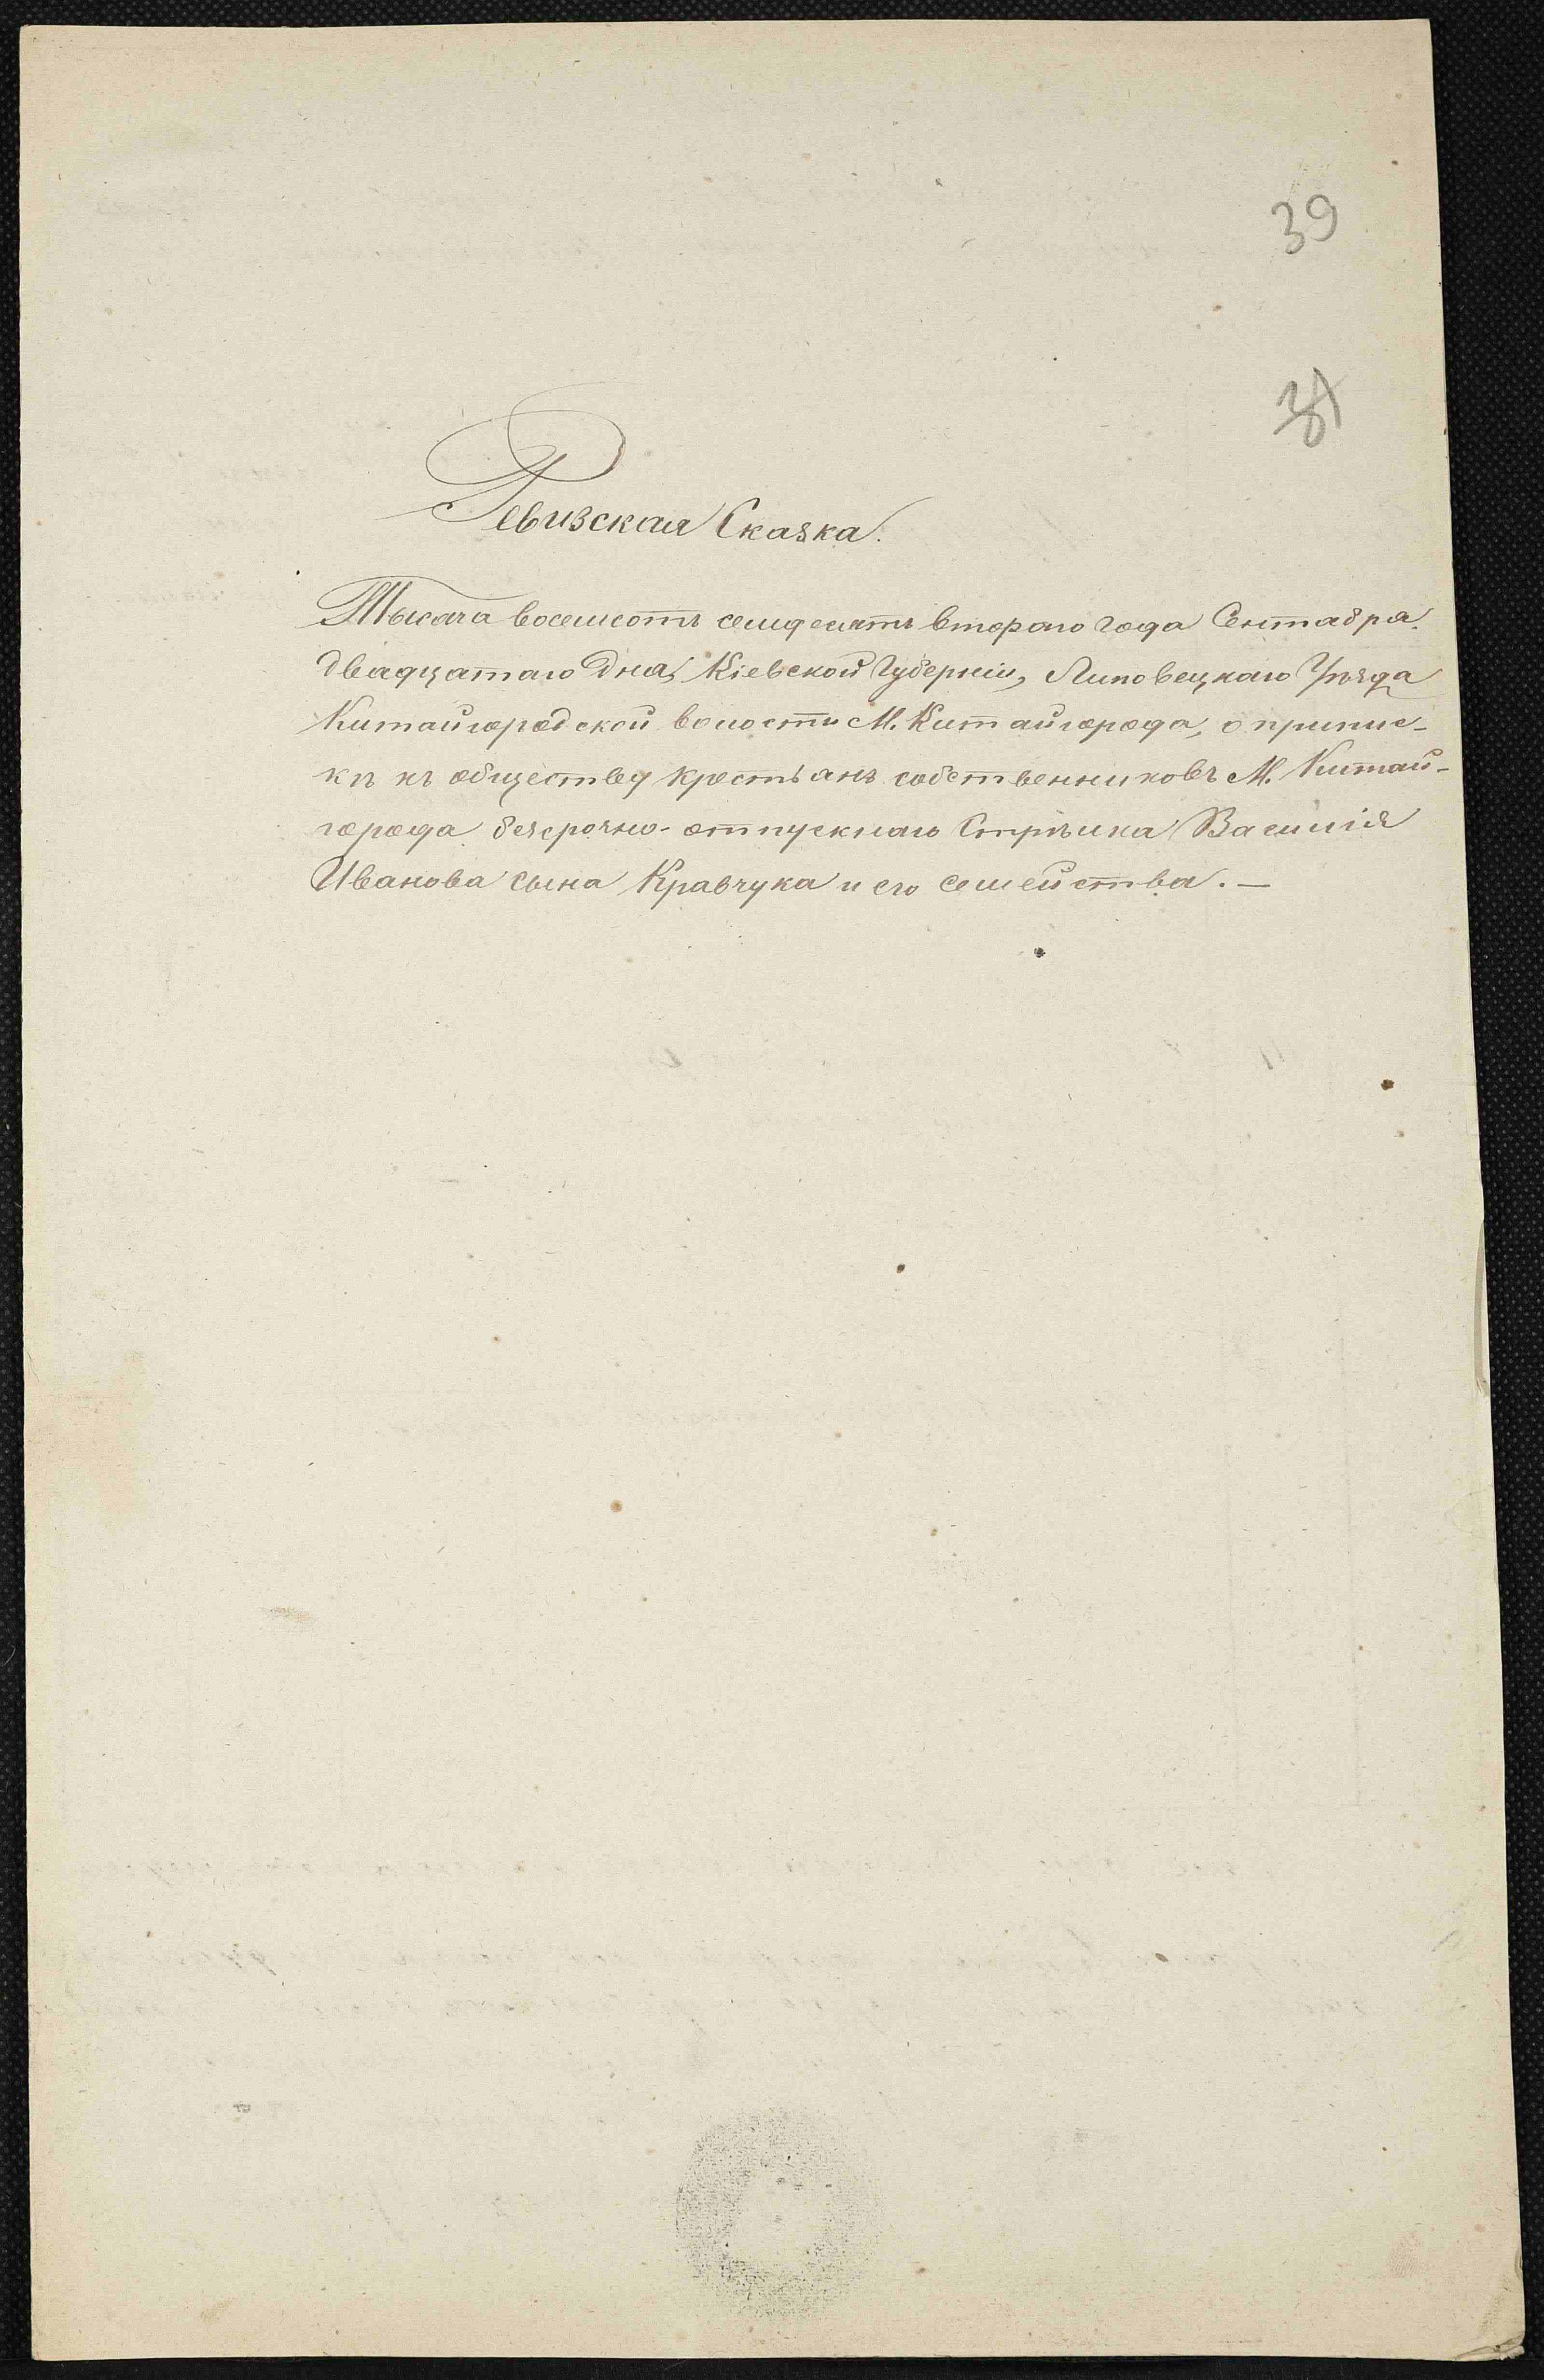 39
Ревизская Сказка.
Тысяча восемсотъ семдесятъ втораго года Сентября
двадцатаго дня, Кіевской Губерніи, Липовецкаго Уѣзда
Китайгородской волости М. Китайгорода, о припис-
кѣ къ обществу крестьянъ собственниковъ М. Китай-
города безсрочно-отпускнаго Стрѣлка Василія
Иванова сына Кравчука и его семейства. —